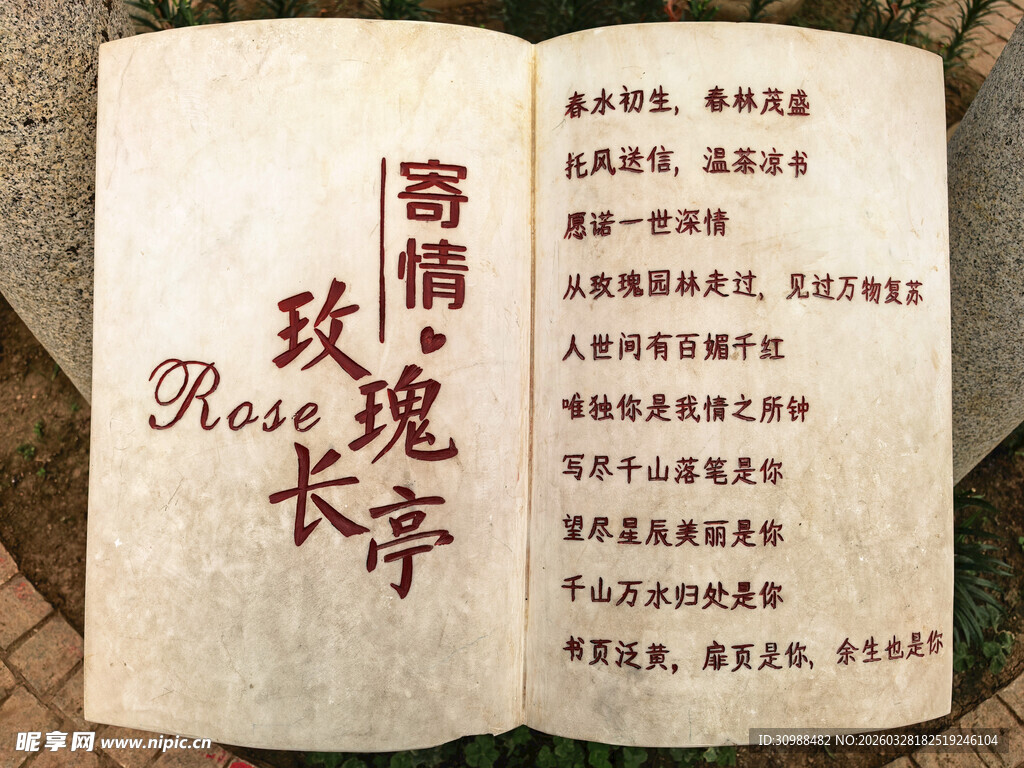 寄情
玫瑰
Rose
长亭
春水初生，春林茂盛
托风送信，温茶凉书
愿诺一世深情
从玫瑰园林走过，见过万物复苏
人世间有百媚千红
唯独你是我情之所钟
写尽千山落笔是你
望尽星辰美丽是你
千山万水归处是你
书页泛黄，扉页是你，余生也是你
昵享网 www.nipic.cn
ID:30988482 NO:20260328182519246104